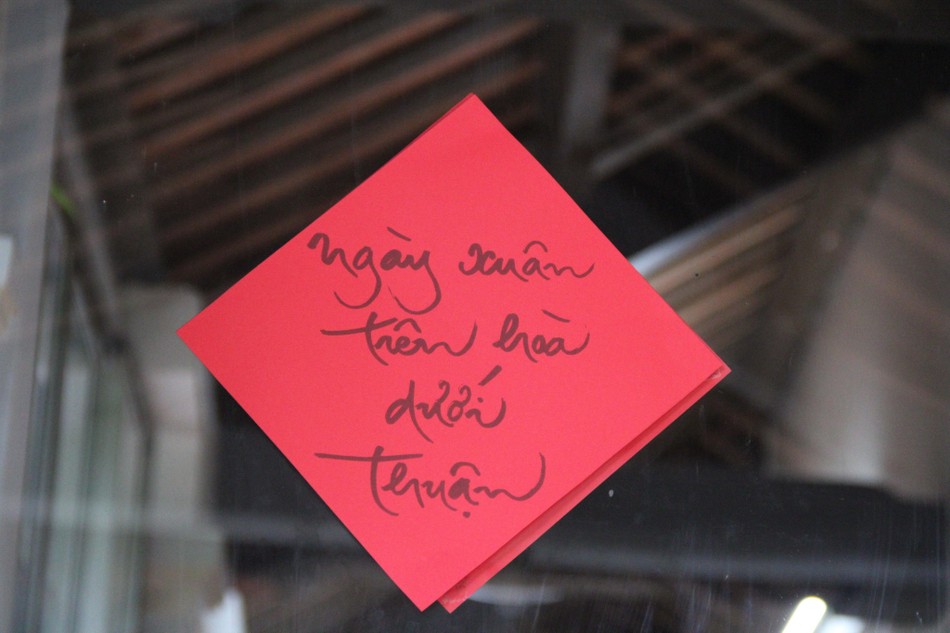 ngày xuân
trên hoà
dưới
Thuận